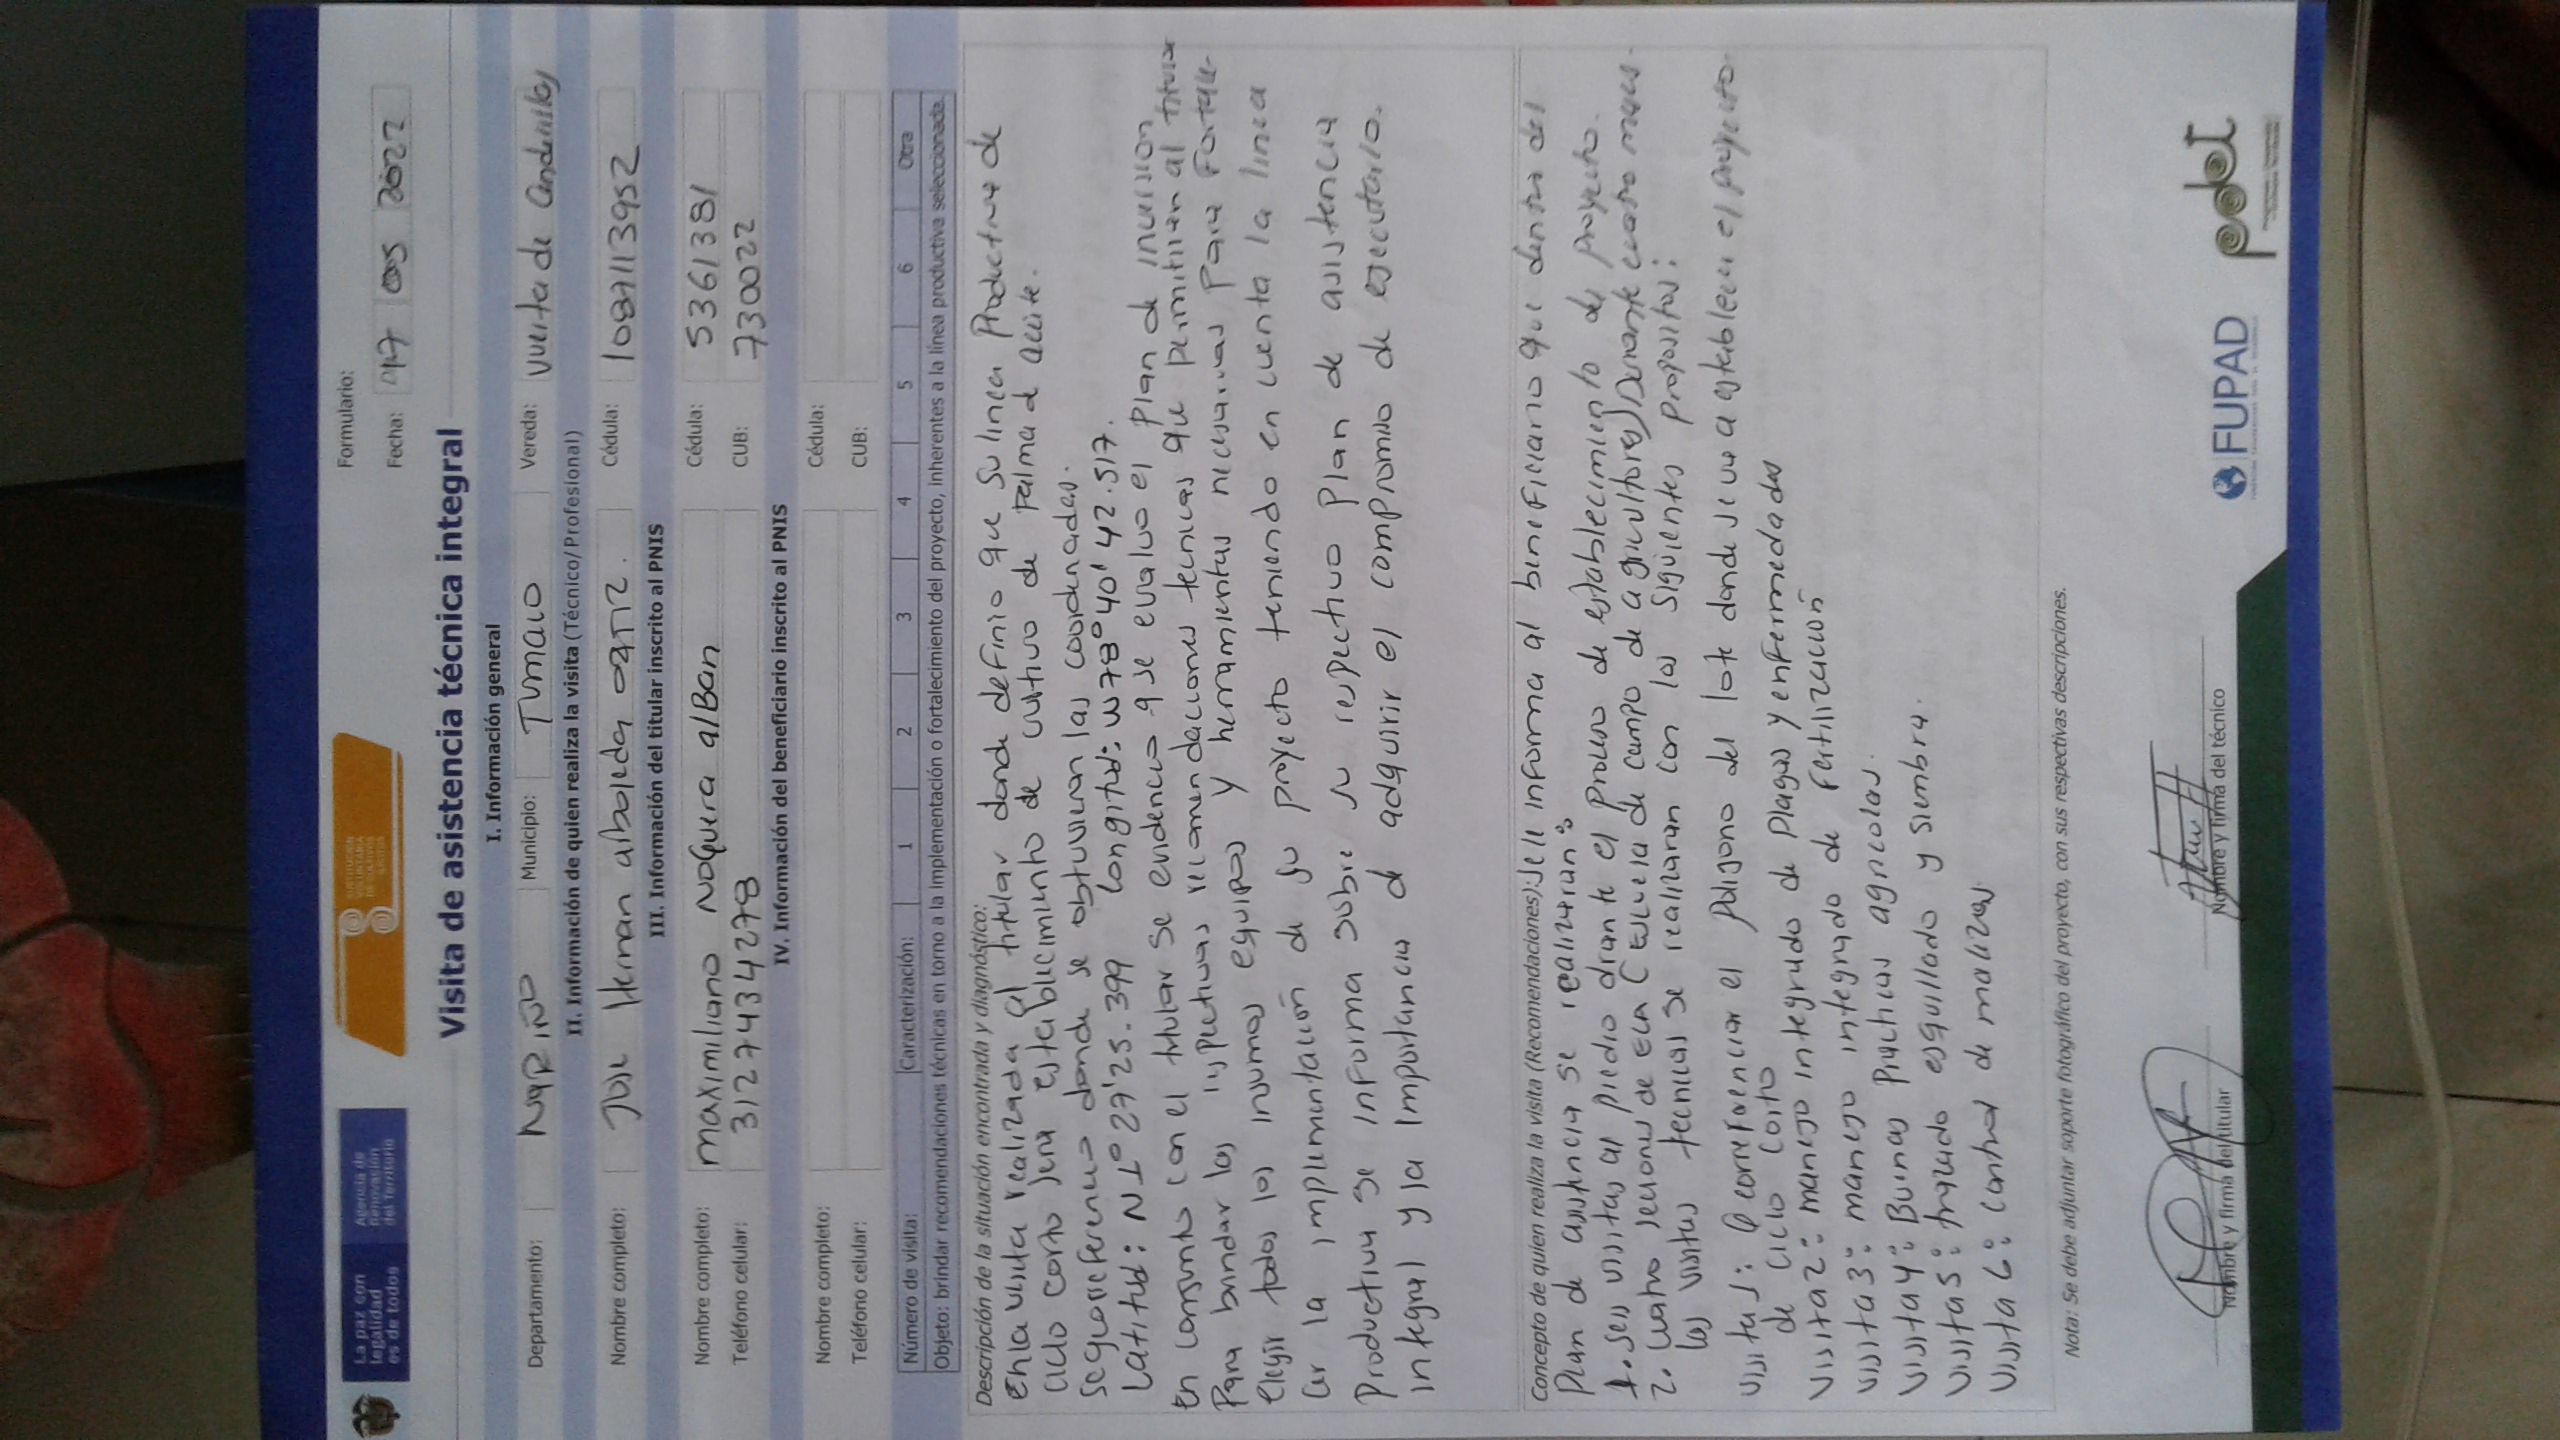 La paz con
legalidad
es de todos
Agencia de
Renovación
del Territorio
SUSTITUCIÓN
VOLUNTARIA
DE CULTIVOS
ILÍCITOS
Formulario:
Fecha: 05 2022
Visita de asistencia técnica integral
I. Información general
Departamento: NaRiño Municipio: Tumaco Vereda: Vuelta de Candelillas
II. Información de quien realiza la visita (Técnico/Profesional)
Nombre completo: Jose Hernan arboleda ortiz. Cédula: 1087113952
III. Información del titular inscrito al PNIS
Nombre completo: maximiliano Noguera alBan Cédula: 5361381
Teléfono celular: 3127434278 CUB: 730022
IV. Información del beneficiario inscrito al PNIS
Nombre completo: Cédula:
Teléfono celular: CUB:
Número de visita: Caracterización: 1 2 3 4 5 6 Otra
Objeto: brindar recomendaciones técnicas en torno a la implementación o fortalecimiento del proyecto, inherentes a la línea productiva seleccionada.
Descripción de la situación encontrada y diagnóstico:
En la visita realizada al titular donde definio que su linea Productiva de
ciclo corto sera establecimiento de cultivo de palma de aceite.
se georeferencio donde se obtuvieron las coordenadas.
Latitud: N 1° 27' 25.399 longitud: W 78° 40' 42.517.
En conjunto con el titular se evidencio y se evaluo el plan de inversion
Para brindar las respectivas recomendaciones tecnicas que permitiran al titular
elegir todos los insumos equipos y herramientas necesarias para Fortale-
cer la implementación de su proyecto teniendo en cuenta la linea
Productiva se informa sobre su respectivo plan de asistencia
integral y la importancia d adquirir el compromiso de ejecutarlo.
Concepto de quien realiza la visita (Recomendaciones): Se le informa al beneficiario que dentro del
Plan de asistencia se realizaran:
1. seis visitas al predio drante el Proceso de establecimiento de proyecto.
2. cuatro seciones de ECA (Escuela de campo de agricultores) Durante cuatro meses.
las visitas tecnicas se realizaran con los siguientes propositos:
visita 1: Georreferenciar el poligono del lote donde se va a establecer el proyecto
de ciclo corto
Visita 2: manejo integrado de Plagas y enfermedades
Visita 3: manejo integrado de fertilización
Visita 4: Buenas Practicas agricolas.
Visita 5: trazado esquillado y siembra.
Visita 6: control de malizas.
Nota: Se debe adjuntar soporte fotográfico del proyecto, con sus respectivas descripciones.
Nombre y firma del titular
Nombre y firma del técnico
FUPAD
pdet